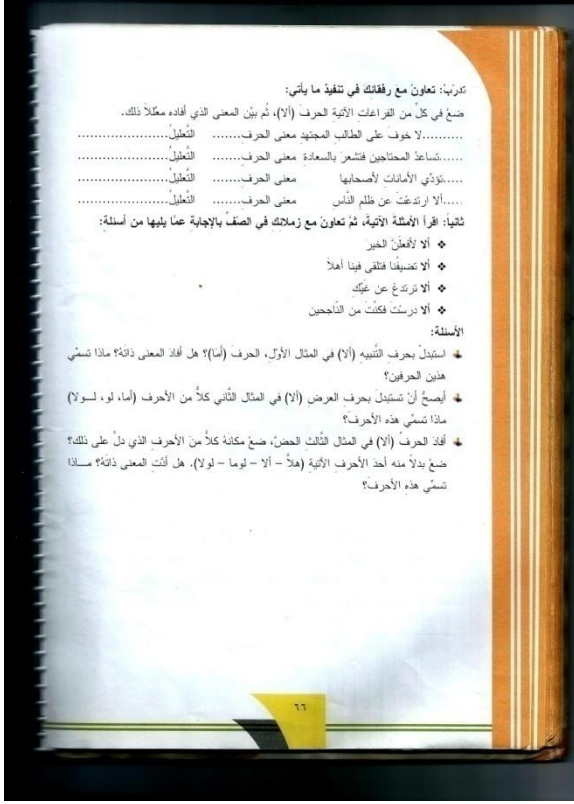 تدرّبْ: تعاونْ معَ رفقائكَ في تنفيذ ما يأتي:
ضعْ في كلٍّ من الفراغاتِ الآتيةِ الحرفَ (ألا)، ثُم بيّن المعنى الذي أفاده معلِّلاً ذلك.
..........لا خوفَ على الطالبِ المجتهدِ معنى الحرفِ....... التّعليلُ.......................
......تساعدُ المحتاجين فتشعرَ بالسعادةِ معنى الحرفِ....... التّعليلُ.......................
.....تؤدّي الأماناتِ لأصحابها معنى الحرفِ....... التّعليلُ.......................
.....ألا ارتدعْتَ عن ظلم النّاسِ معنى الحرفِ....... التّعليلُ.......................
ثانياً: اقرأ الأمثلة الآتيةَ، ثمّ تعاونْ مع زملائكَ في الصفّ بالإجابةِ عمّا يليها من أسئلةٍ:
❖ ألا لأفعلَنَّ الخيرَ
❖ ألا تضيفُنا فتلقى فينا أهلاً
❖ ألا ترتدعُ عن غيِّكَ
❖ ألا درسْتَ فكنْتَ من النّاجحين
الأسئلة:
استبدلْ بحرفِ التّنبيهِ (ألا) في المثال الأوّلِ، الحرفَ (أمَا)؟ هل أفادَ المعنى ذاتَهُ؟ ماذا تسمّي
هذين الحرفين؟
أيصحُّ أنْ تستبدلَ بحرفِ العرضِ (ألا) في المثال الثّاني كلاًّ من الأحرفِ (أما، لو، لـولا)
ماذا تسمّي هذه الأحرفَ؟
أفادَ الحرفُ (ألا) في المثال الثّالث الحضَّ، ضعْ مكانَهُ كلاًّ منَ الأحرفِ الذي دلَّ على ذلك؟
ضعْ بدلاً منه أحدَ الأحرفِ الآتيةِ (هلاَّ – ألا – لوما – لولا). هل أدّتِ المعنى ذاتَهُ؟ مــاذا
تسمّي هذهِ الأحرفَ؟
٦٦